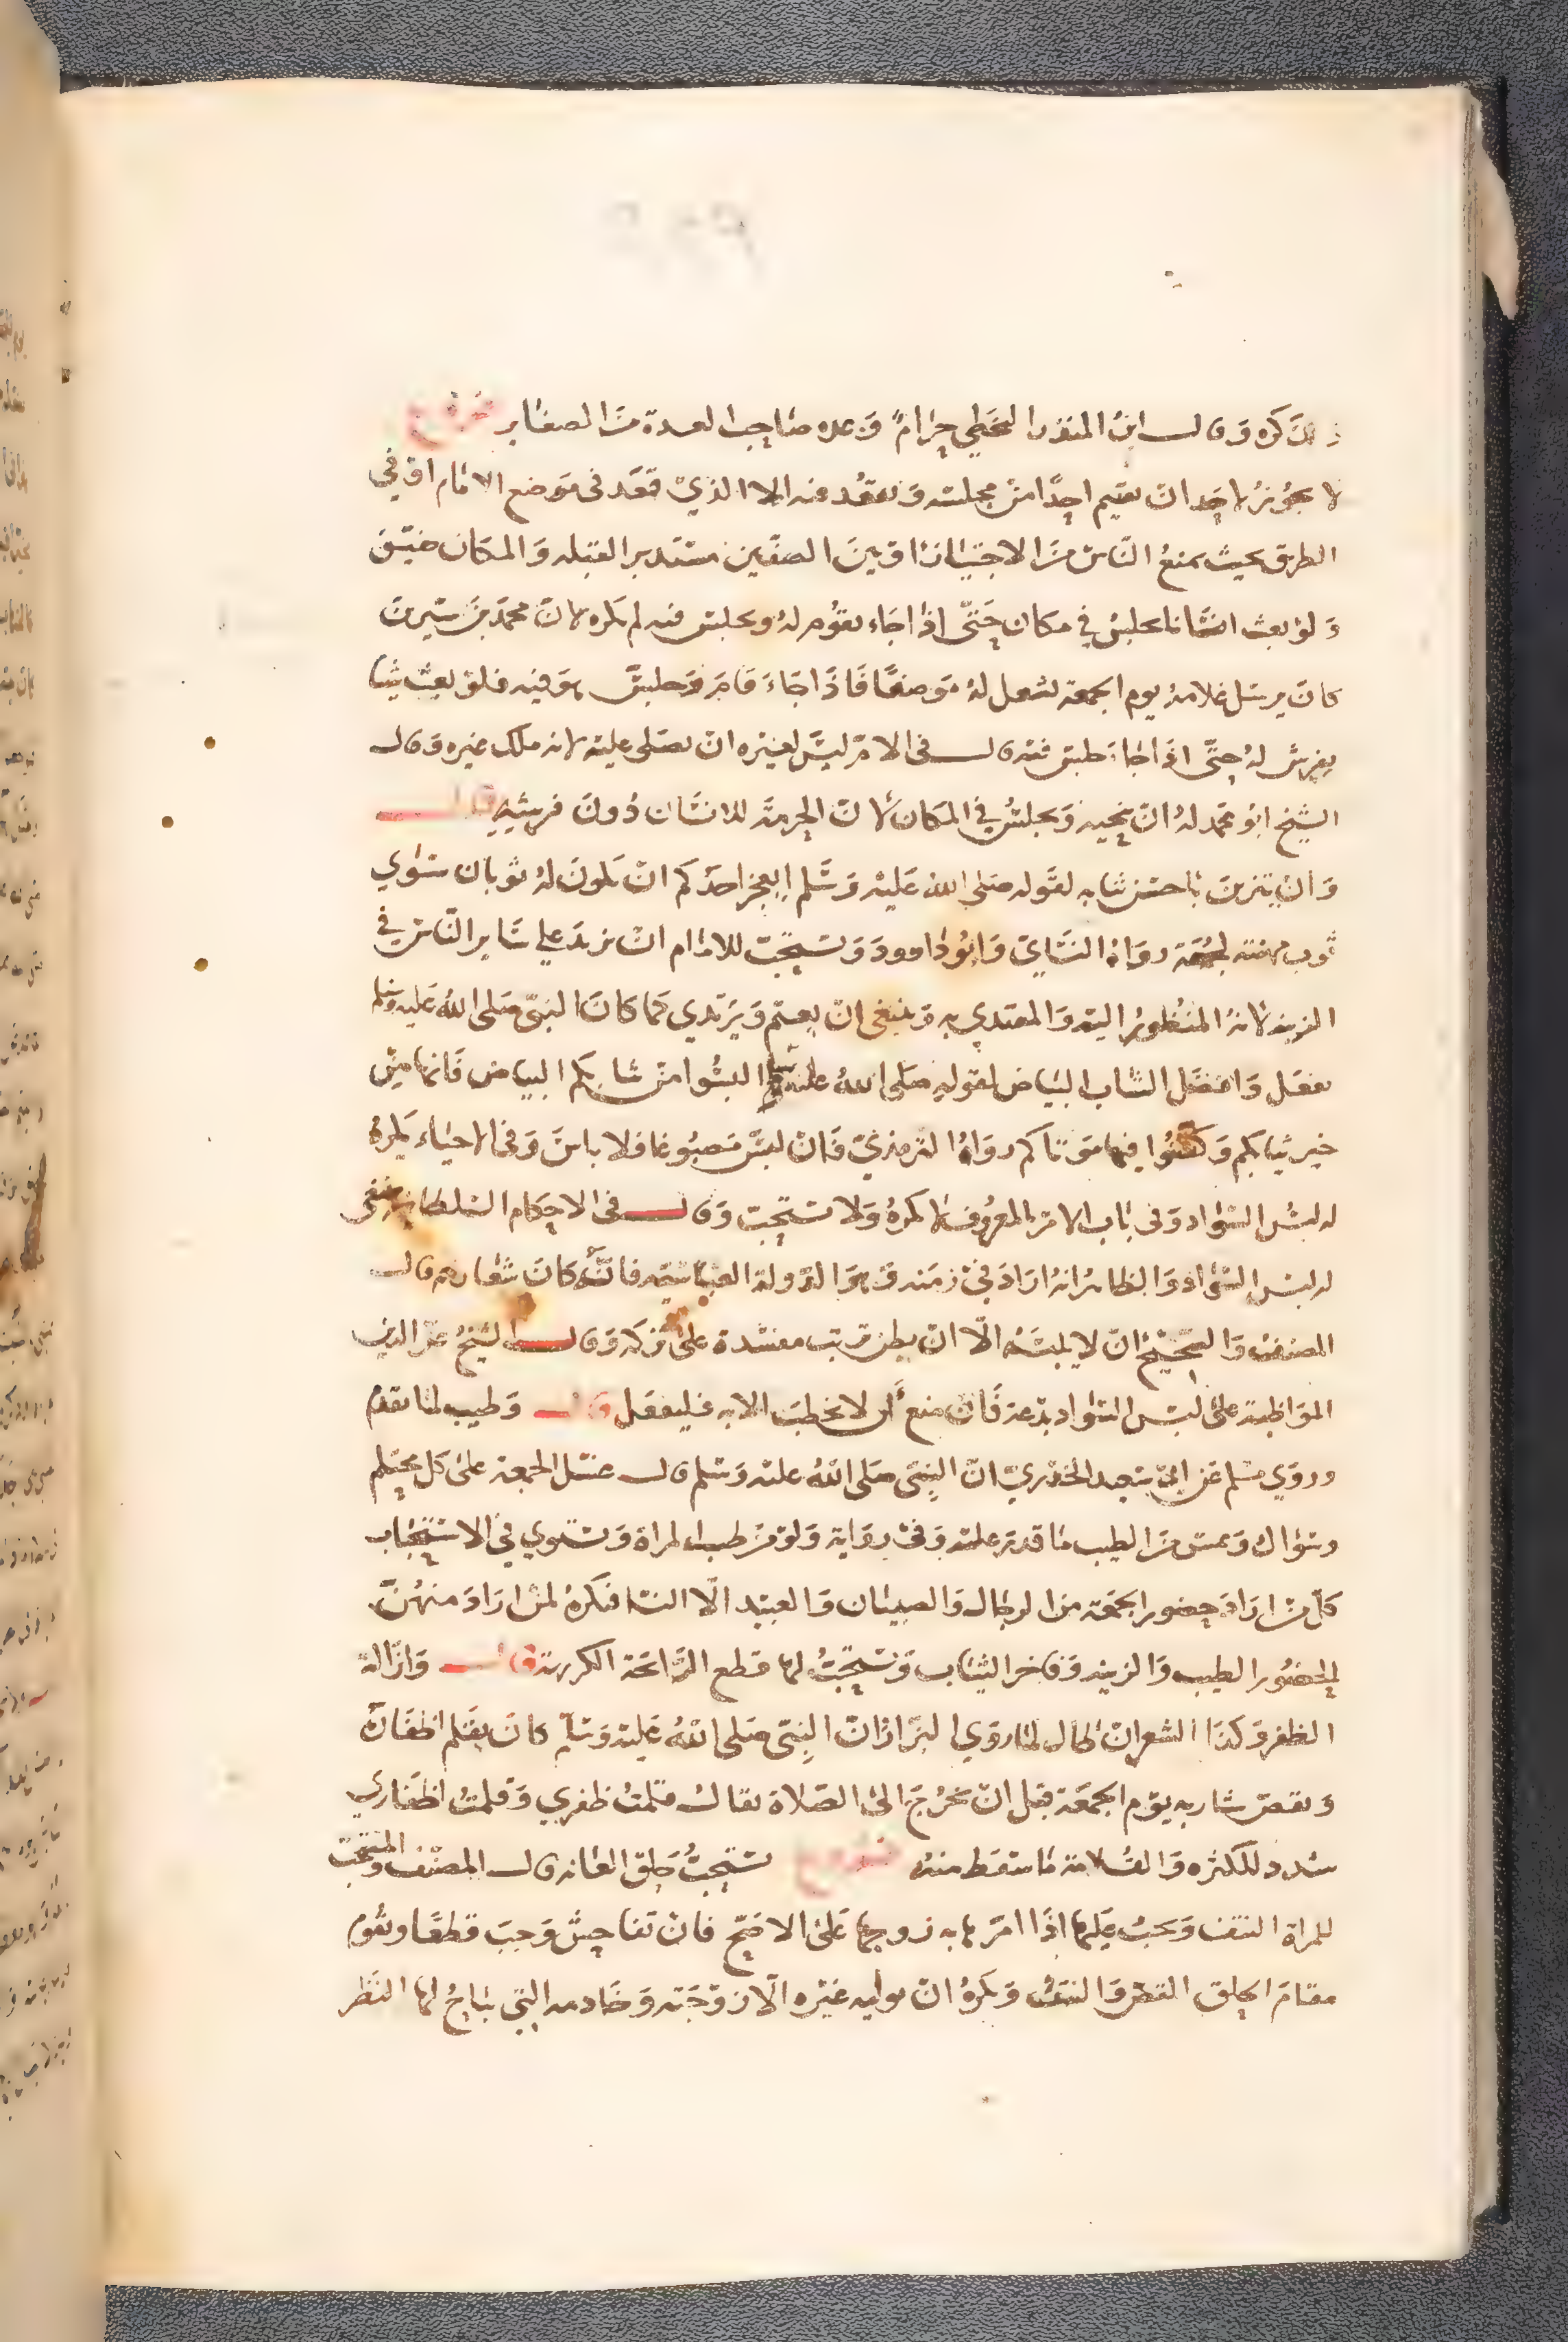 ذلك كره وقال ابن المنذر التخطي حرام وعده صاحب العدة من الصغاير فروع
لا يجوز لاحد ان يقيم احدا من مجلسه ويقعد فيه الا الذي قعد في موضع الامام او في
الطريق بحيث يمنع الناس من الاجتياز او بين الصفين مستدبر القبله والمكان ضيق
ولو بعث انسانا يجلس في مكان حتى اذا جاء يقوم له ويجلس فيه لم يكره لان محمد بن سيرين
كان يرسل غلامه يوم الجمعة ليحصل له موضعا فاذا جاء قام وجلس هو فيه فلو بعث شيا
يفرش له حتى اذا جاء جلس فقد قال في الام ليس لغيره ان يصلى عليه لانه ملك غيره وقال
الشيخ ابو محمد له ان ينحيه ويجلس في المكان لان الحرمة للانسان دون فرشه قال
وان يتزين باحسن ثيابه لقوله صلى الله عليه وسلم ايعجز احدكم ان يكون له ثوبان سوي
ثوب مهنته لجمعته رواه النساي وابو داوود ويستحب للامام ان يزيد على ساير الناس في
الزينه لانه المنظور اليه والمقتدي به وينبغي ان يعتم ويرتدي كما كان النبي صلى الله عليه وسلم
يفعل وافضل الثياب البياض لقوله صلى الله عليه وسلم البسوا من ثيابكم البياض فانها من
خير ثيابكم وكفنوا فيها موتاكم رواه الترمذي فان لبس مصبوغا فلا باس وفي الاحياء يكره
له لبس السواد وفي باب الامر بالمعروف لا يكره ولا يستحب وقال في الاحكام السلطانيه ينبغي
له لبس السواد والظاهر انه اراد في زمنه وهو الدولة العباسيه فانه كان شعارهم قال
المصنف والصحيح ان لا يلبسه الا ان يظن ترتب مفسدة على تركه وقال الشيخ عز الدين
المواظبة على لبس السواد بدعة فان منع أن لا يخطب الا به فليفعل قال وطيب لما تقدم
وروي مسلم عن ابي سعيد الخدري ان النبي صلى الله عليه وسلم قال غسل الجمعة على كل محتلم
وسواك ويمس من الطيب ما قدر عليه وفي رواية ولو من طيب المراة ويستوي في الاستحباب
كل من اراد حضور الجمعة من الرجال والصبيان والعبيد الا النسا فيكره لمن اراد منهن
الحضور الطيب والزينه وفاخر الثياب ويستحب لها قطع الرائحة الكريهة قال وازالة
الظفر وكذا الشعر ان طال لما روي البزار ان النبي صلى الله عليه وسلم كان يقلم اظفاره
ويقص شاربه يوم الجمعة قبل ان يخرج الى الصلاة يقال قلمت ظفري وقلمت اظفاري
شدد للكثره والقلامة ما سقط منه فروع يستحب حلق العانه قال المصنف والمستحب
للمراة النتف ويجب عليها اذا امرها به زوجها على الاصح فان تفاحش وجب قطعا ويقوم
مقام الحلق القص والنتف ويكره ان يوليه غيره الا زوجته وخادمه التي يباح لها النظر